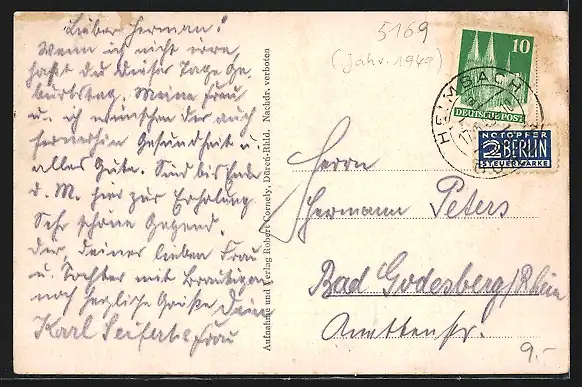 Lieber Herman!
Wenn ich nicht irre,
hast du dieser Tage Ge-
burtstag. Meine Frau
u. ich wünschen dir auch
fernerhin Gesundheit u.
alles Gute. Sind bis Ende
d. M. hier zur Erholung.
Sehr schöne Gegend.
Dir, deiner lieben Frau
u. Tochter mit Bräutigam
noch herzliche Grüße Dein
Karl Seifert u. Frau
Aufnahme und Verlag Robert Cornely, Düren-Rhld. Nachdr. verboten
5169
(Jahr. 1949)
10
DEUTSCHE POST
HEIMBACH
NOTOPFER
2 BERLIN
STEUERMARKE
Herrn
Hermann Peters
Bad Godesberg/Rhein
9.-